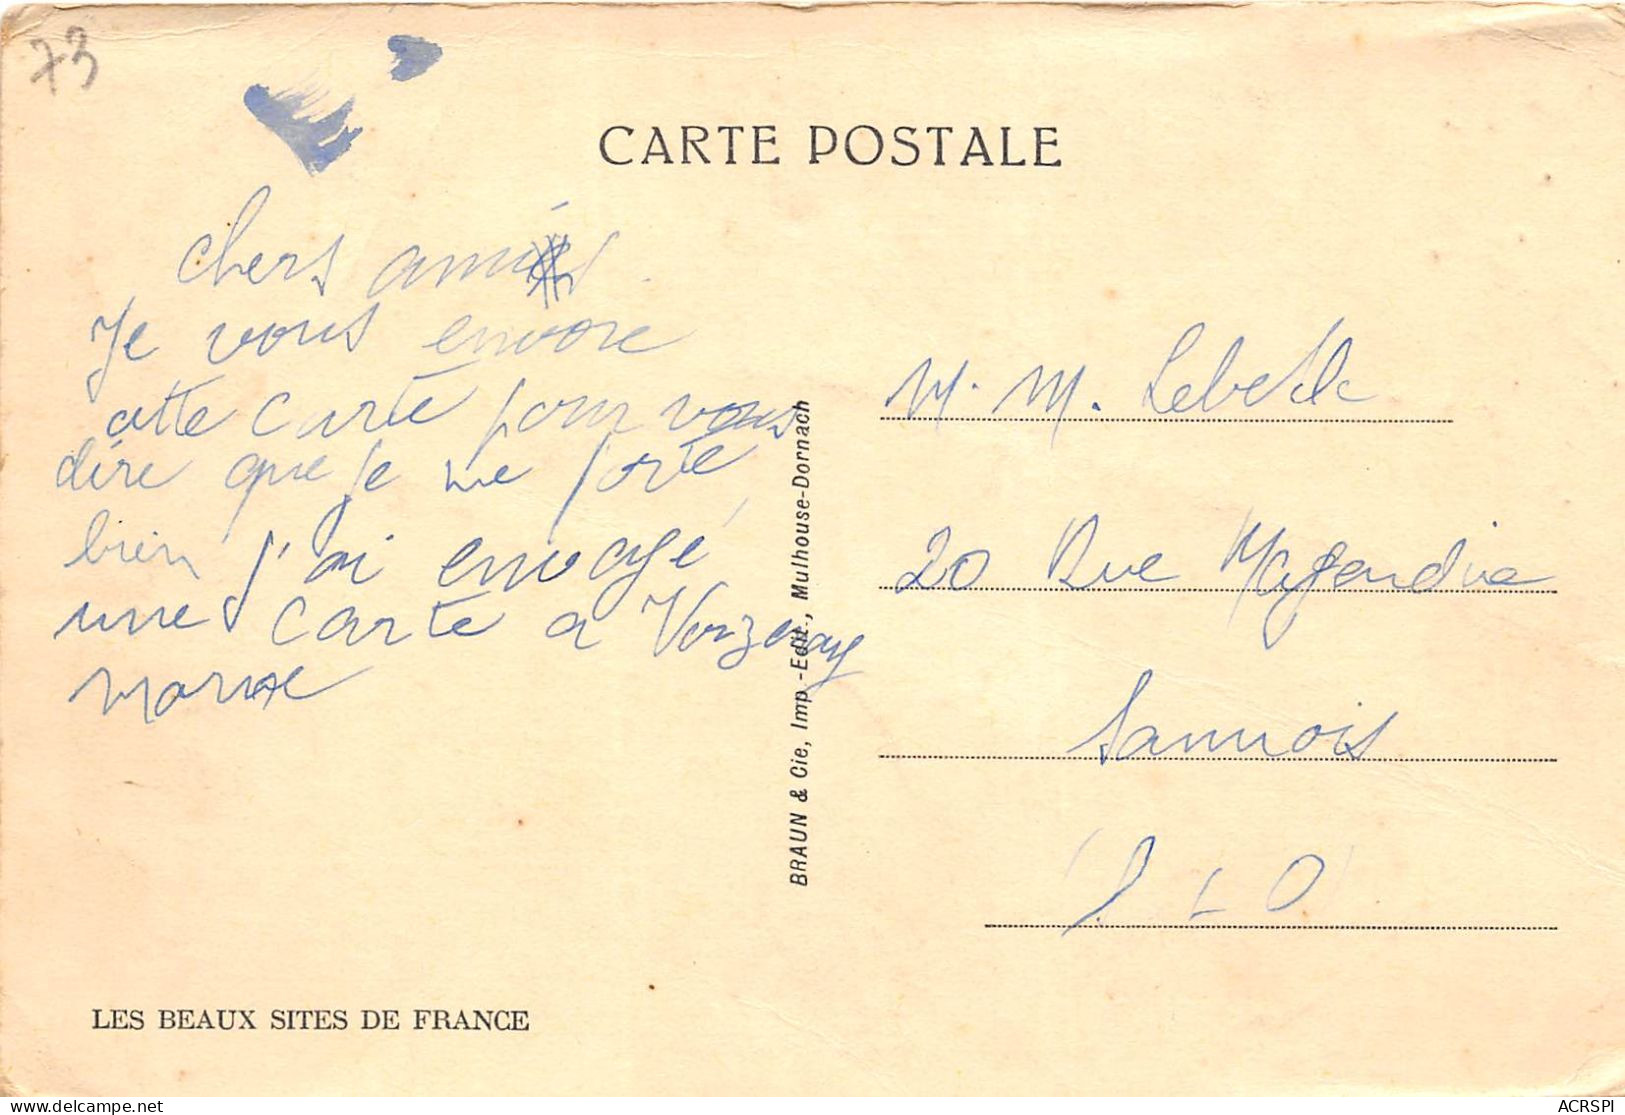 73
CARTE POSTALE
chers amis
Je vous envoie
cette carte pour vous
dire que je me porte
bien j'ai envoyé
une carte a Verzenay
marne
M. M.
20 Rue Magendie
Sannois
S-O
BRAUN & Cie, Imp.-Edit., Mulhouse-Dornach
LES BEAUX SITES DE FRANCE
delcampe.net
ACRSPI